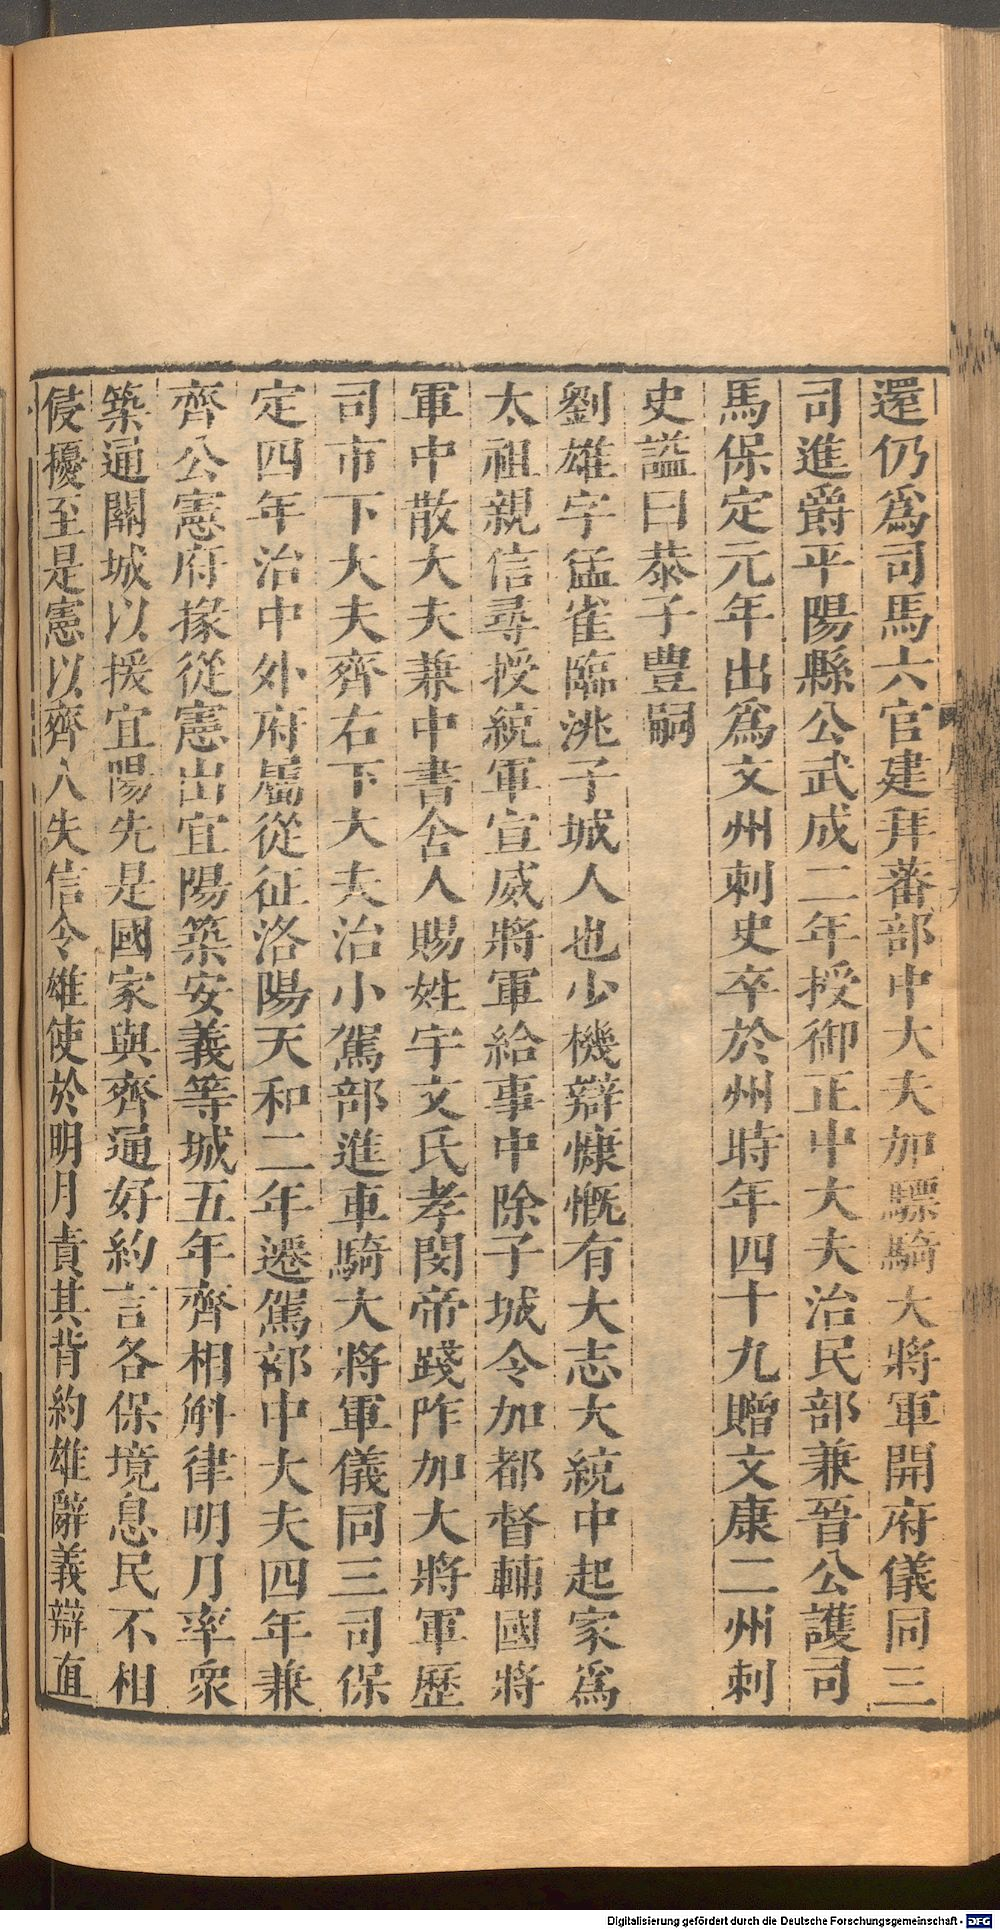 還仍爲司馬六官建拜蕃部中大夫加驃騎大將軍開府儀同三
司進爵平陽縣公武成二年授御正中大夫治民部兼晉公護司
馬保定元年出爲文州刺史卒於州時年四十九贈文康二州刺
史謚曰恭子豊嗣
劉雄字猛雀臨洮子城人也少機辯慷慨有大志大統中起家爲
太祖親信尋授統軍宣威將軍給事中除子城令加都督輔國將
軍中散大夫兼中書舍人賜姓宇文氏孝閔帝踐阼加大將軍歷
司市下大夫齊右下大夫治小駕部進車騎大將軍儀同三司保
定四年治中外府屬從征洛陽天和二年遷駕部中大夫四年兼
齊公憲府掾從憲出宜陽築安義等城五年齊相斛律明月率衆
築通關城以援宜陽先是國家與齊通好約言各保境息民不相
侵擾至是憲以齊人失信令雄使於明月責其背約雄辭義辯直
Digitalisierung gefördert durch die Deutsche Forschungsgemeinschaft - DFG